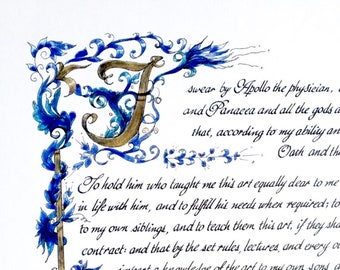 I swear by Apollo the physician,
and Panacea and all the gods a
that, according to my ability an
Oath and th
To hold him who taught me this art equally dear to me
in life with him, and to fulfill his needs when required; to
to my own siblings, and to teach them this art, if they sha
contract: and that by the set rules, lectures, and every o
impart a knowledge of the art to my own sons, a